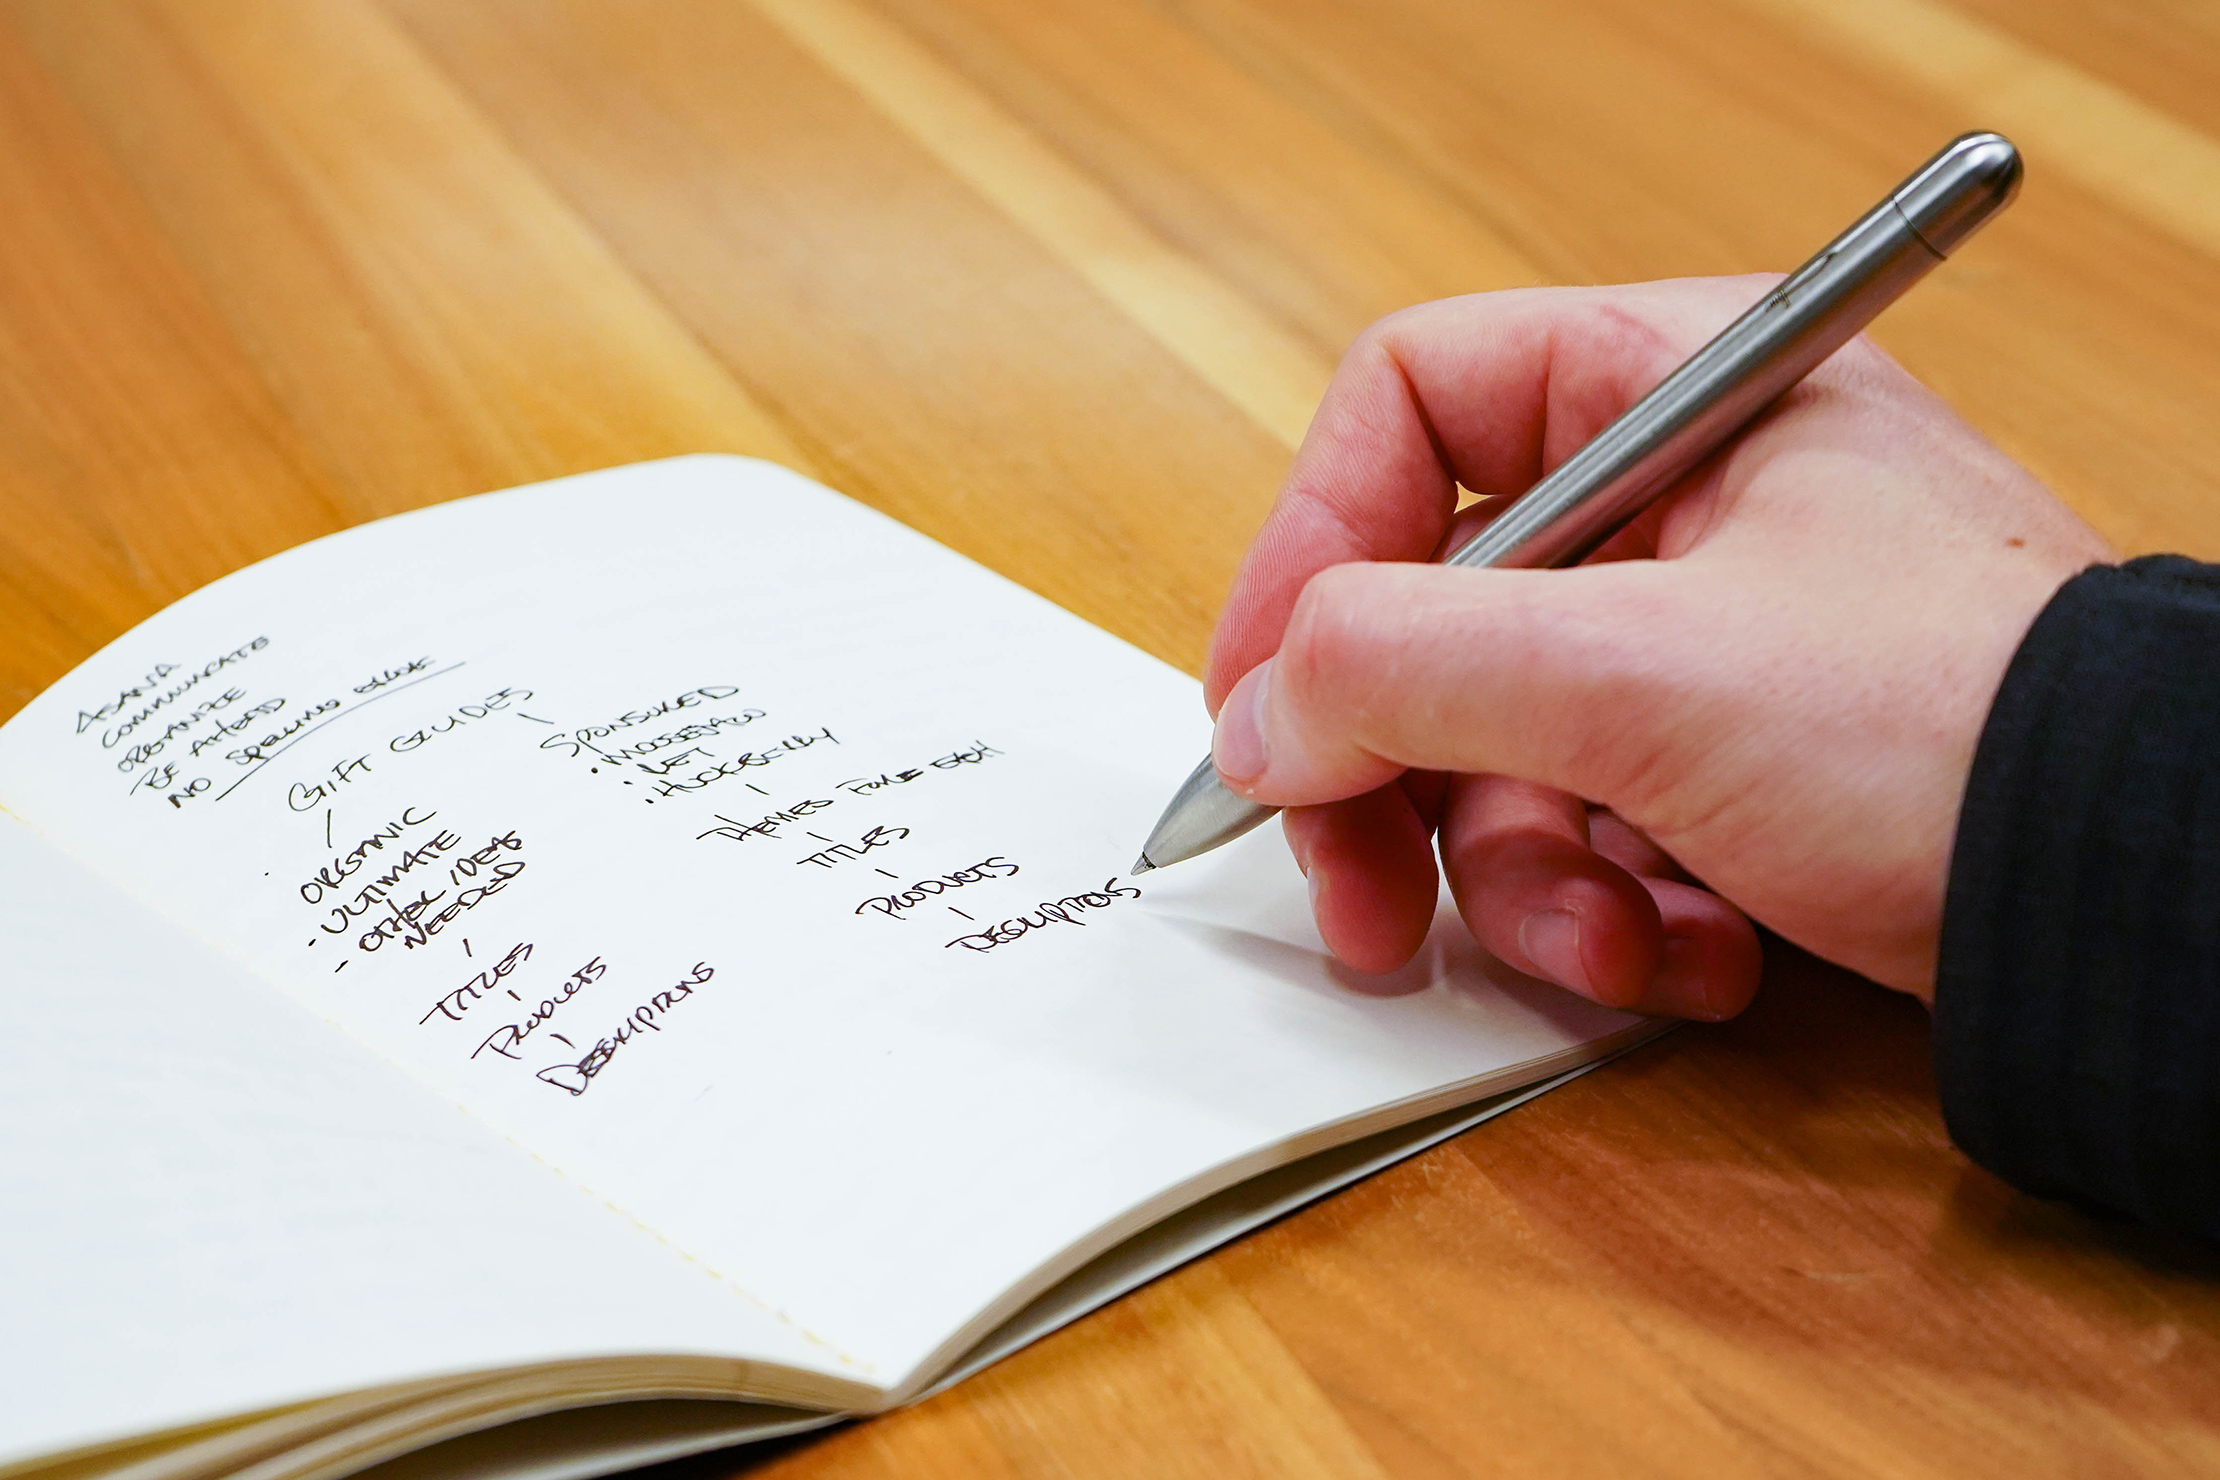 ASANA
COMMUNICATE
ORGANIZE
BE AHEAD
NO SPELLING ERRORS
GIFT GUIDES
ORGANIC
- ULTIMATE
- OTHER IDEAS
NEEDED
TITLES
PRODUCTS
DESCRIPTIONS
SPONSORED
. MOOSEJAW
. HUCKBERRY
THEMES FOR EACH
TITLES
PRODUCTS
DESCRIPTIONS